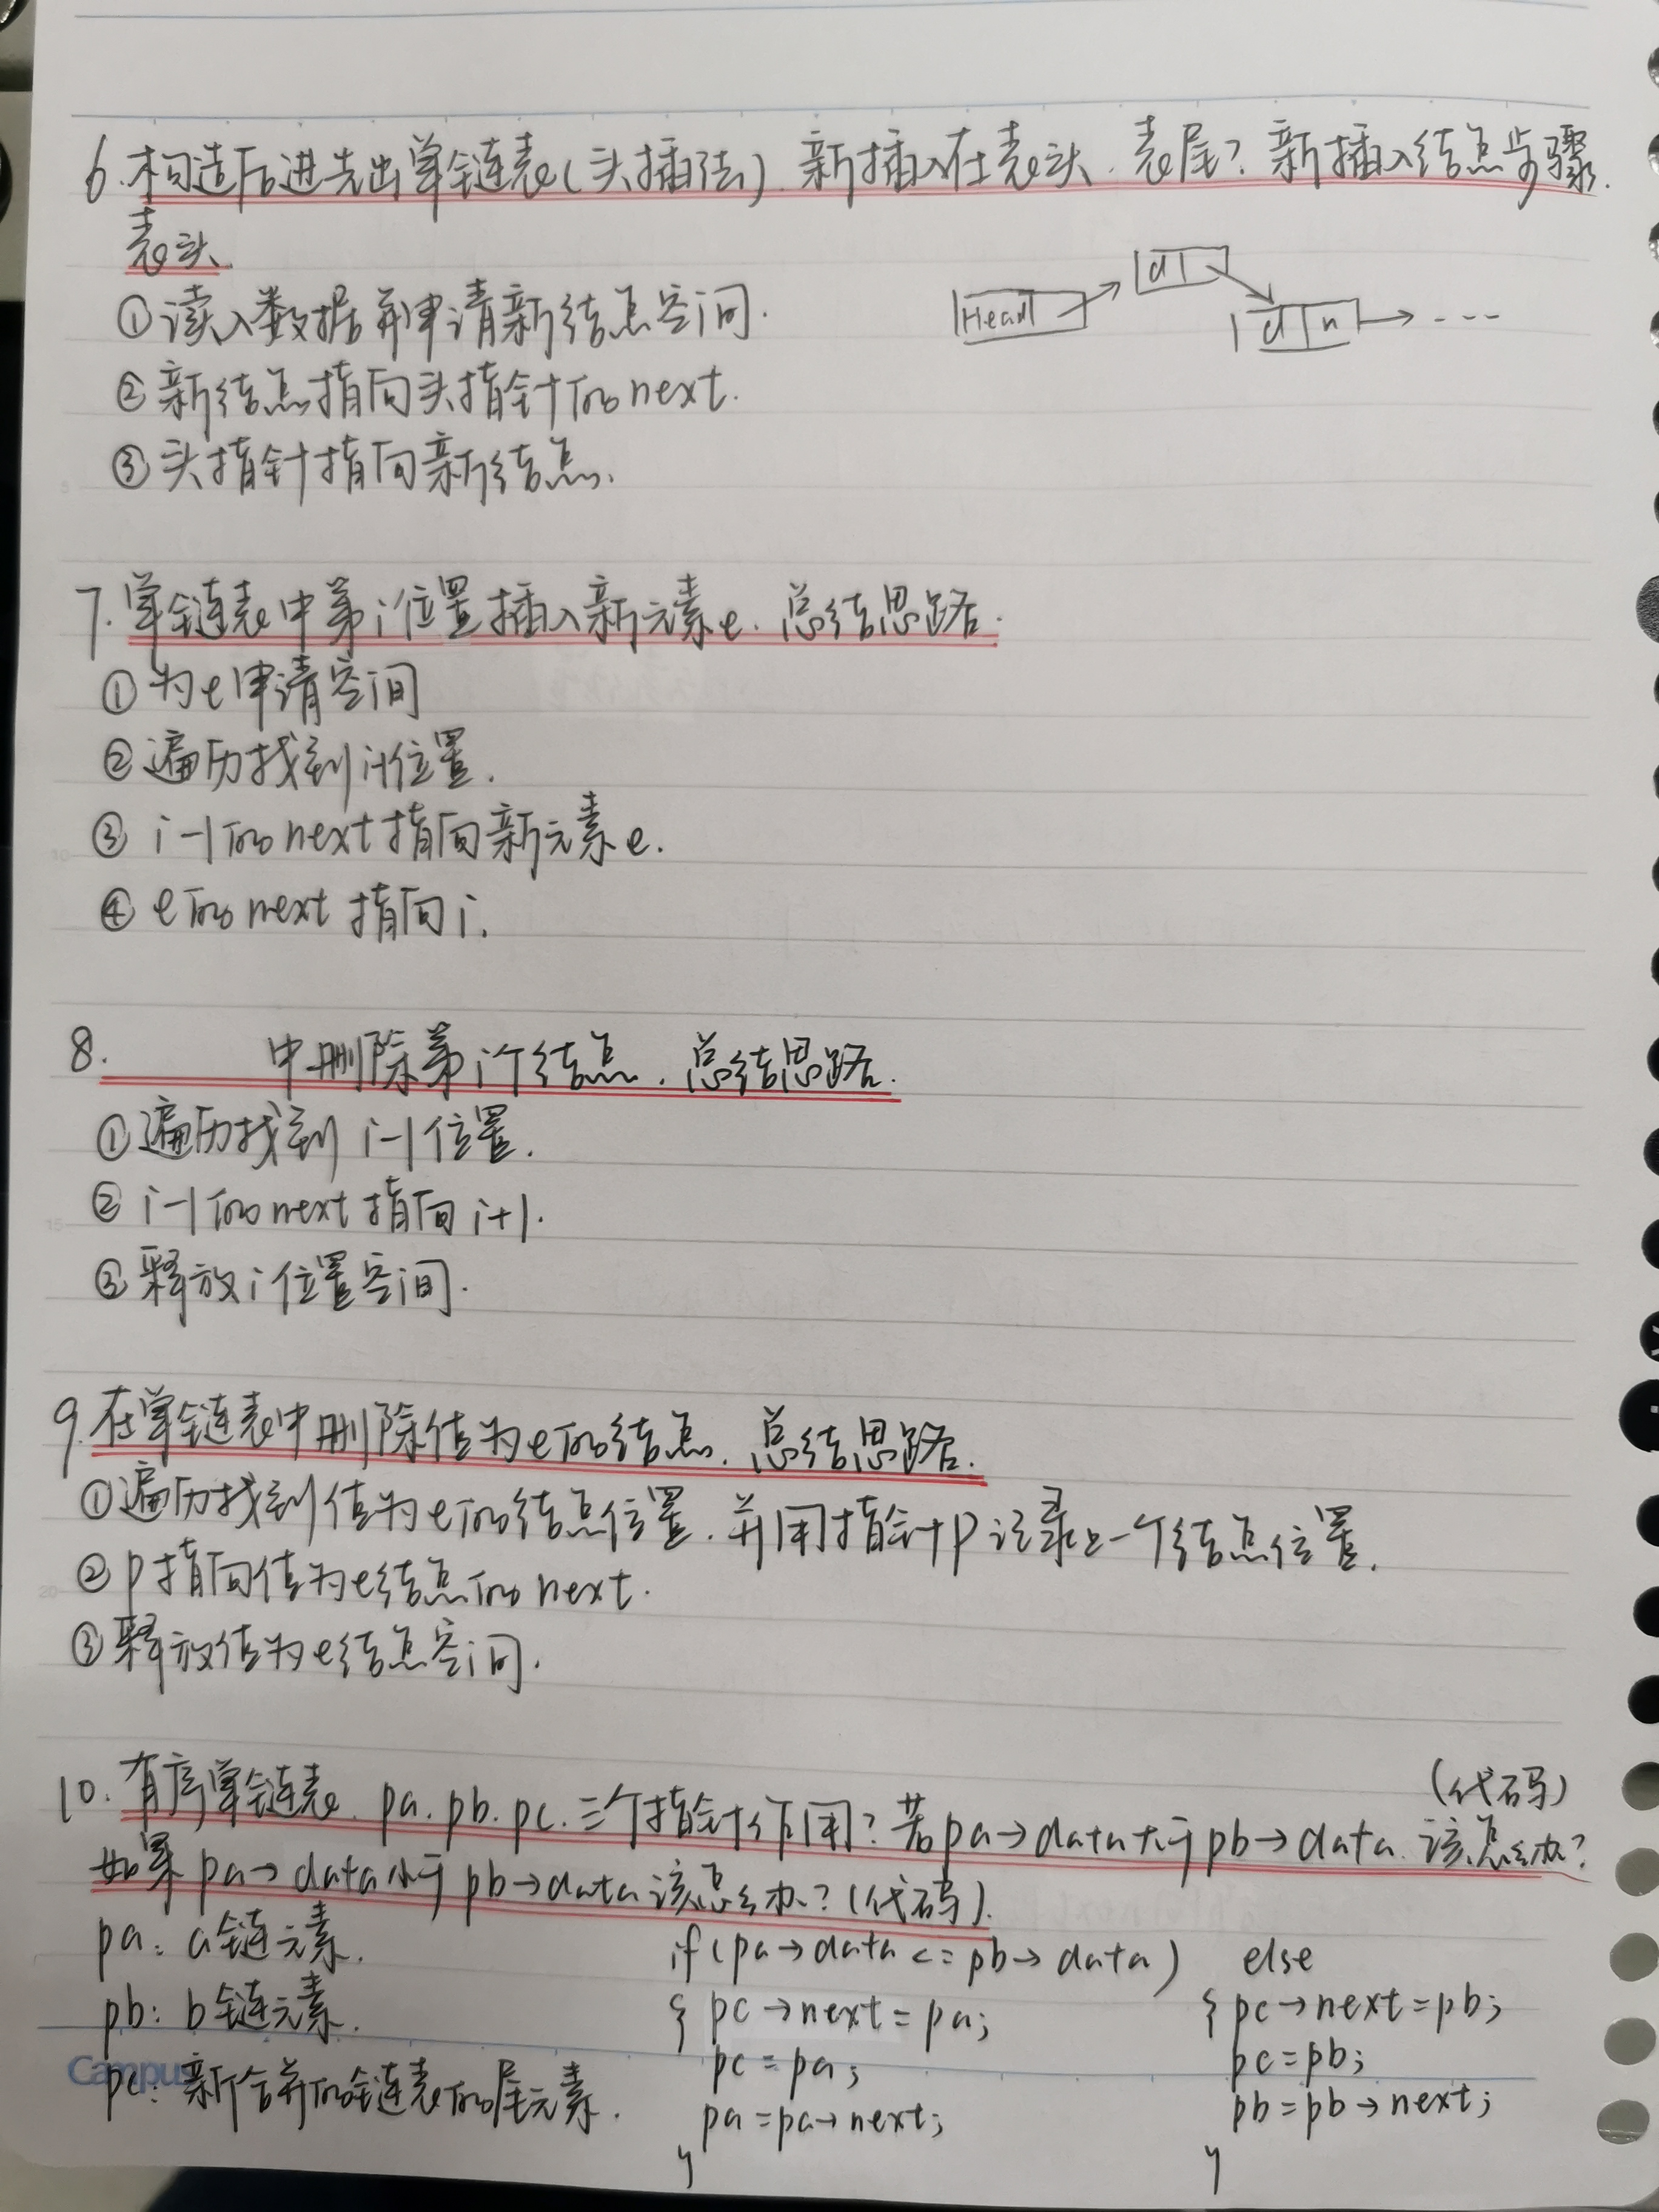 6.构造后进先出单链表(头插法).新插入在表头.表尾?新插入结点步骤.
表头.
①读入数据并申请新结点空间.
Head d d n ---
②新结点指向头指针的next.
③头指针指向新结点.
7.单链表中第i位置插入新元素e.总结思路.
①为e申请空间
②遍历找到i-1位置.
③i-1的next指向新元素e.
④e的next指向i.
8. 中删除第i个结点.总结思路.
①遍历找到i-1位置.
②i-1的next指向i+1.
③释放i位置空间.
9.在单链表中删除值为e的结点.总结思路.
①遍历找到值为e的结点位置.并用指针p记录上一个结点位置.
②p指向值为e结点的next.
③释放值为e结点空间.
10.有序单链表.pa.pb.pc.三个指针作用?若pa→data大于pb→data.该怎么办?(代码)
如果pa→data小于pb→data该怎么办?(代码).
pa:a链元素.
pb:b链元素.
pc:新合并的链表的尾元素.
if(pa→data<=pb→data)
{ pc→next=pa;
pc=pa;
pa=pa→next;
}
else
{ pc→next=pb;
pc=pb;
pb=pb→next;
}
Campus